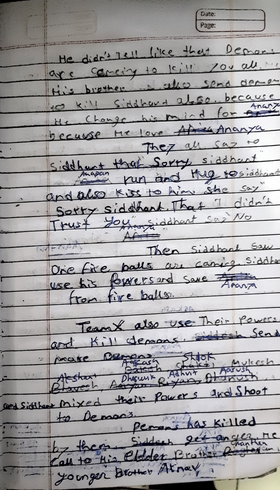 Date:
Page:
He didn't Tell like that Demons
are Comeing to Kill You all
His brother also send demon
to Kill Siddhant also. because
He change his mind for Ananya
because He love Ananya
They all say to
Siddhant that Sorry siddhant
run and Hug to siddhant
and also Kiss to him she say
Sorry siddhant That I didn't
Trust You Siddhant say No
Then Siddhant saw
One fire balls are coming Siddhant
use his Powers and save Ananya
from fire balls.
TeamX also use Their Powers
and Kill demons. Send
more Demons.
Akshant Mukesh
Ashvit Aarush
and Siddhant mixed their Powers and shoot
to Demons.
Demons has Killed
by them. get angry He
Call to His Elder Brother
younger Brother Aknav